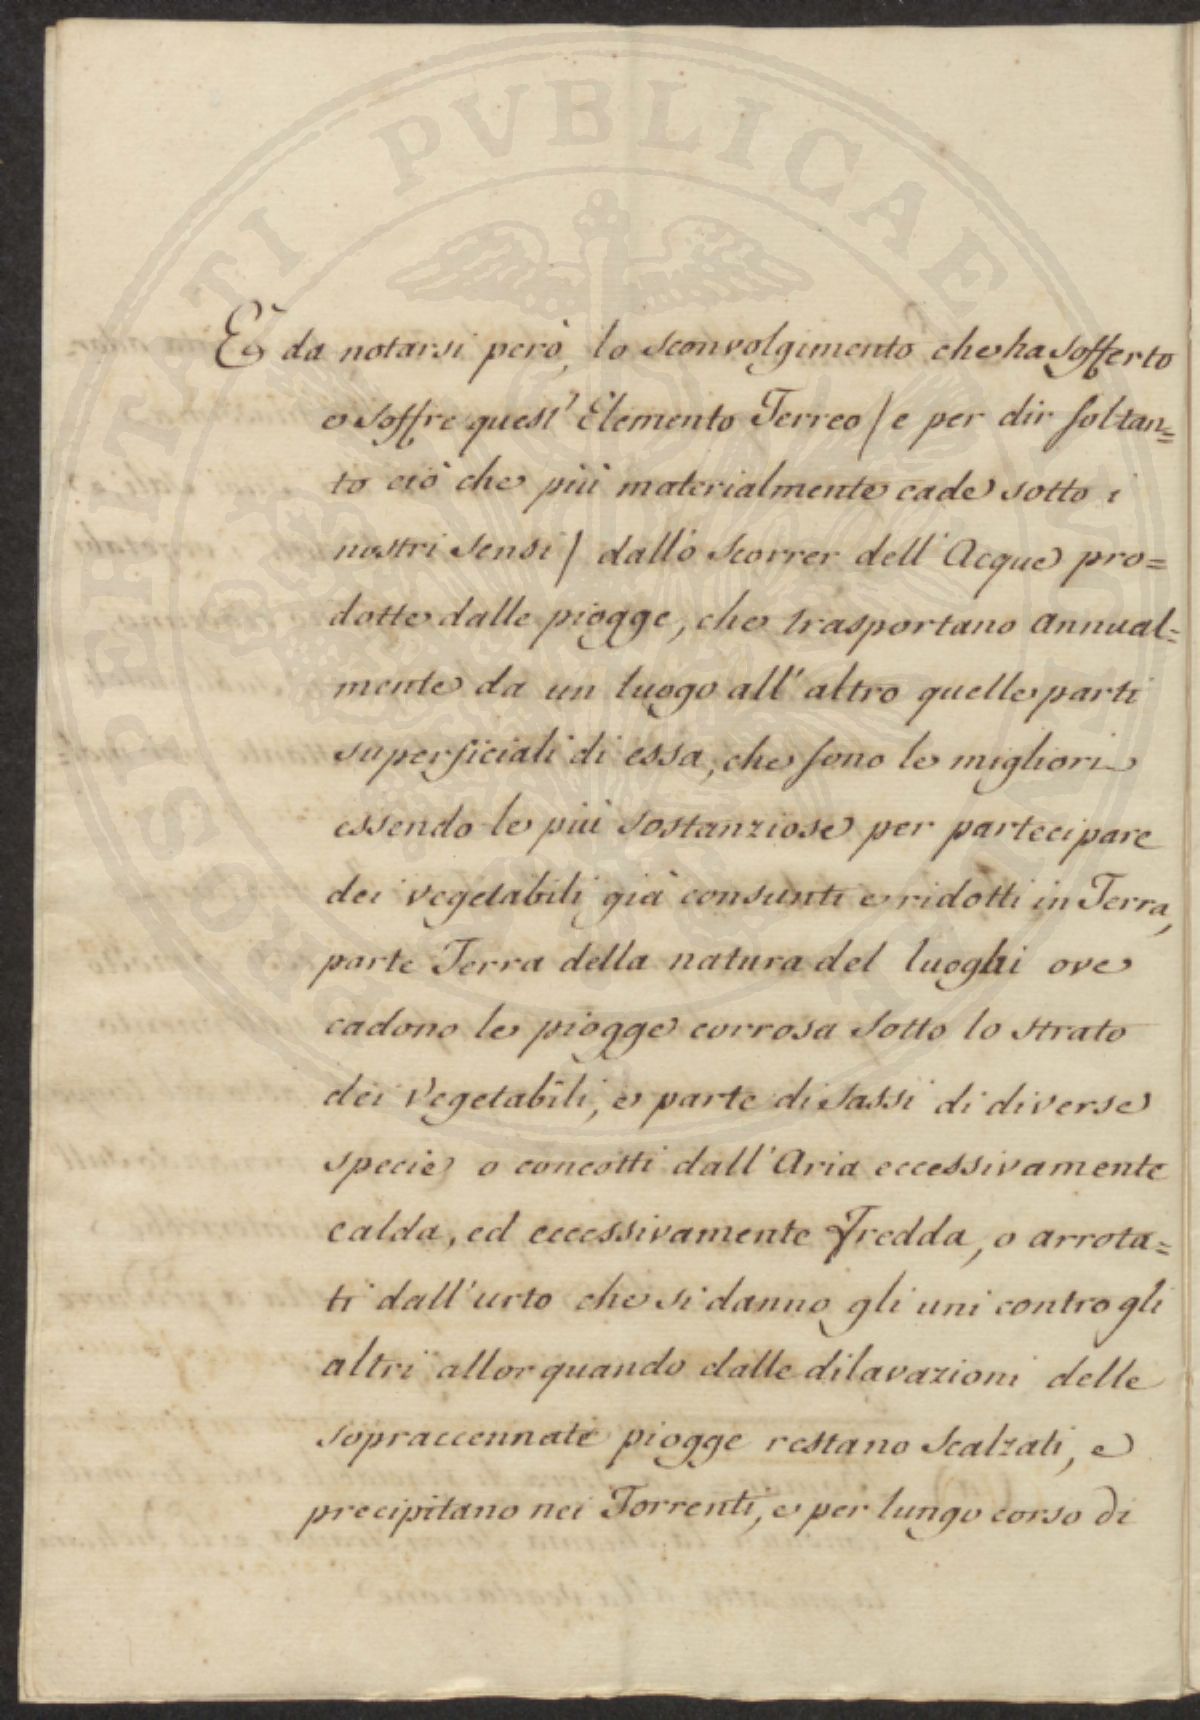 PROSPERITATI PVBLICAE
E' da notarsi però, lo sconvolgimento che ha sofferto
e soffre quest' Elemento Terreo / e per dir soltan=
to ciò che più materialmente cade sotto i
nostri sensi / dallo scorrer dell' Acque pro=
dotte dalle piogge, che trasportano annual=
mente da un luogo all' altro quelle parti
superficiali di essa, che sono le migliori
essendo le più sostanziose per partecipare
dei vegetabili già consunti e ridotti in Terra,
parte Terra della natura del luoghi ove
cadono le piogge corrosa sotto lo strato
dei Vegetabili, e parte di Sassi di diverse
specie o concotti dall' Aria eccessivamente
calda, ed eccessivamente Fredda, o arrota=
ti dall' urto che si danno gli uni contro gli
altri allor quando dalle dilavazioni delle
sopraccennate piogge restano Scalzati, e
precipitano nei Torrenti, e per lungo corso di